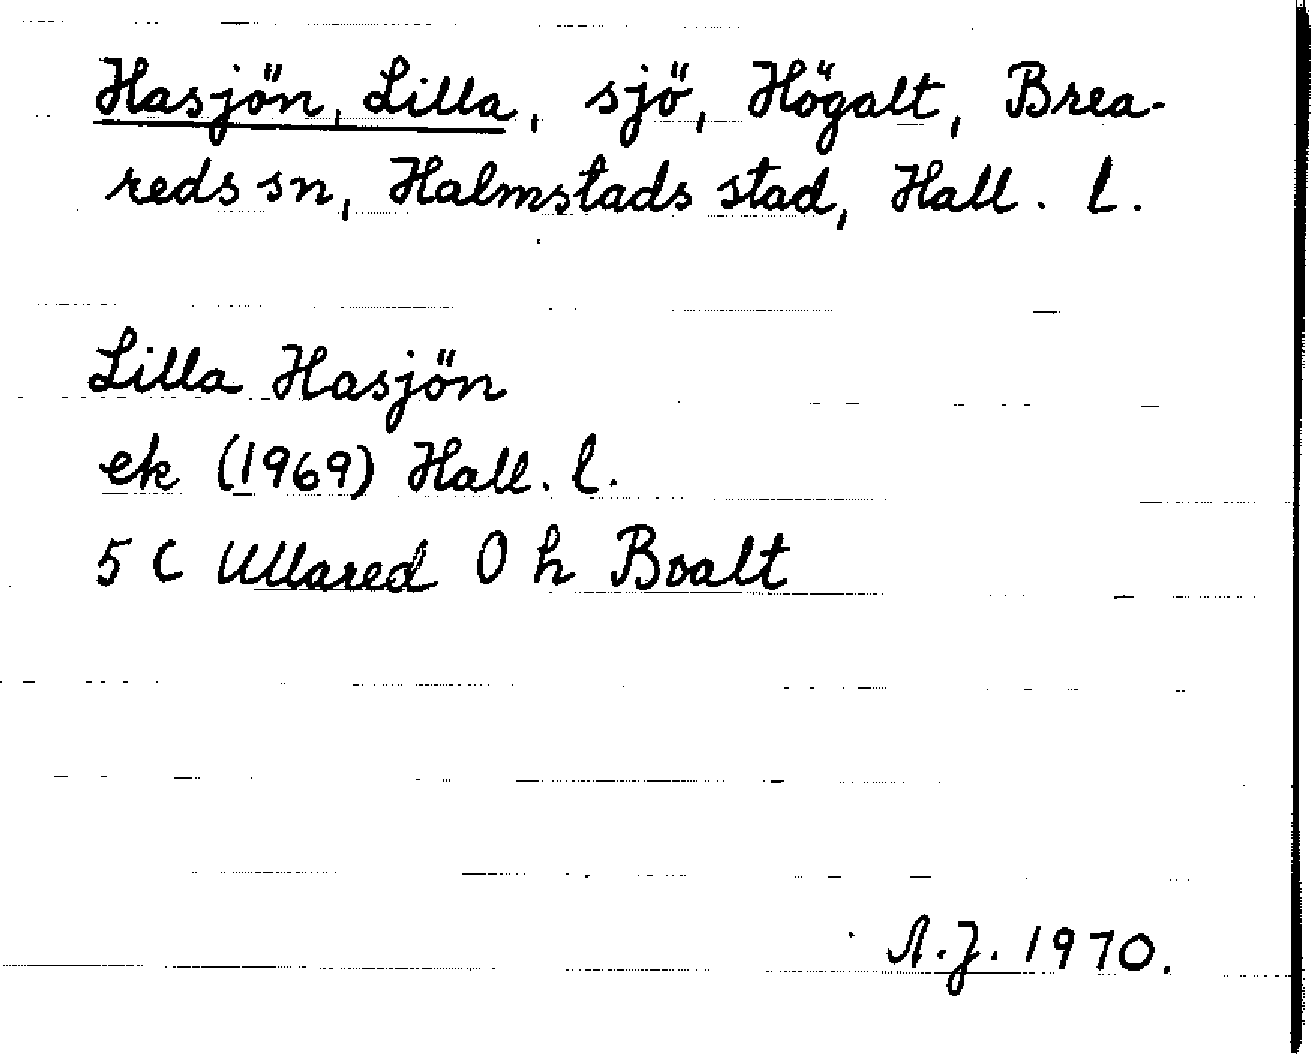 Hasjön, Lilla, sjö, Högalt, Brea-
reds sn, Halmstads stad, Hall. l.
Lilla Hasjön
ek (1969) Hall. l.
5 C Ullared 0 h Boalt
A.J. 1970.